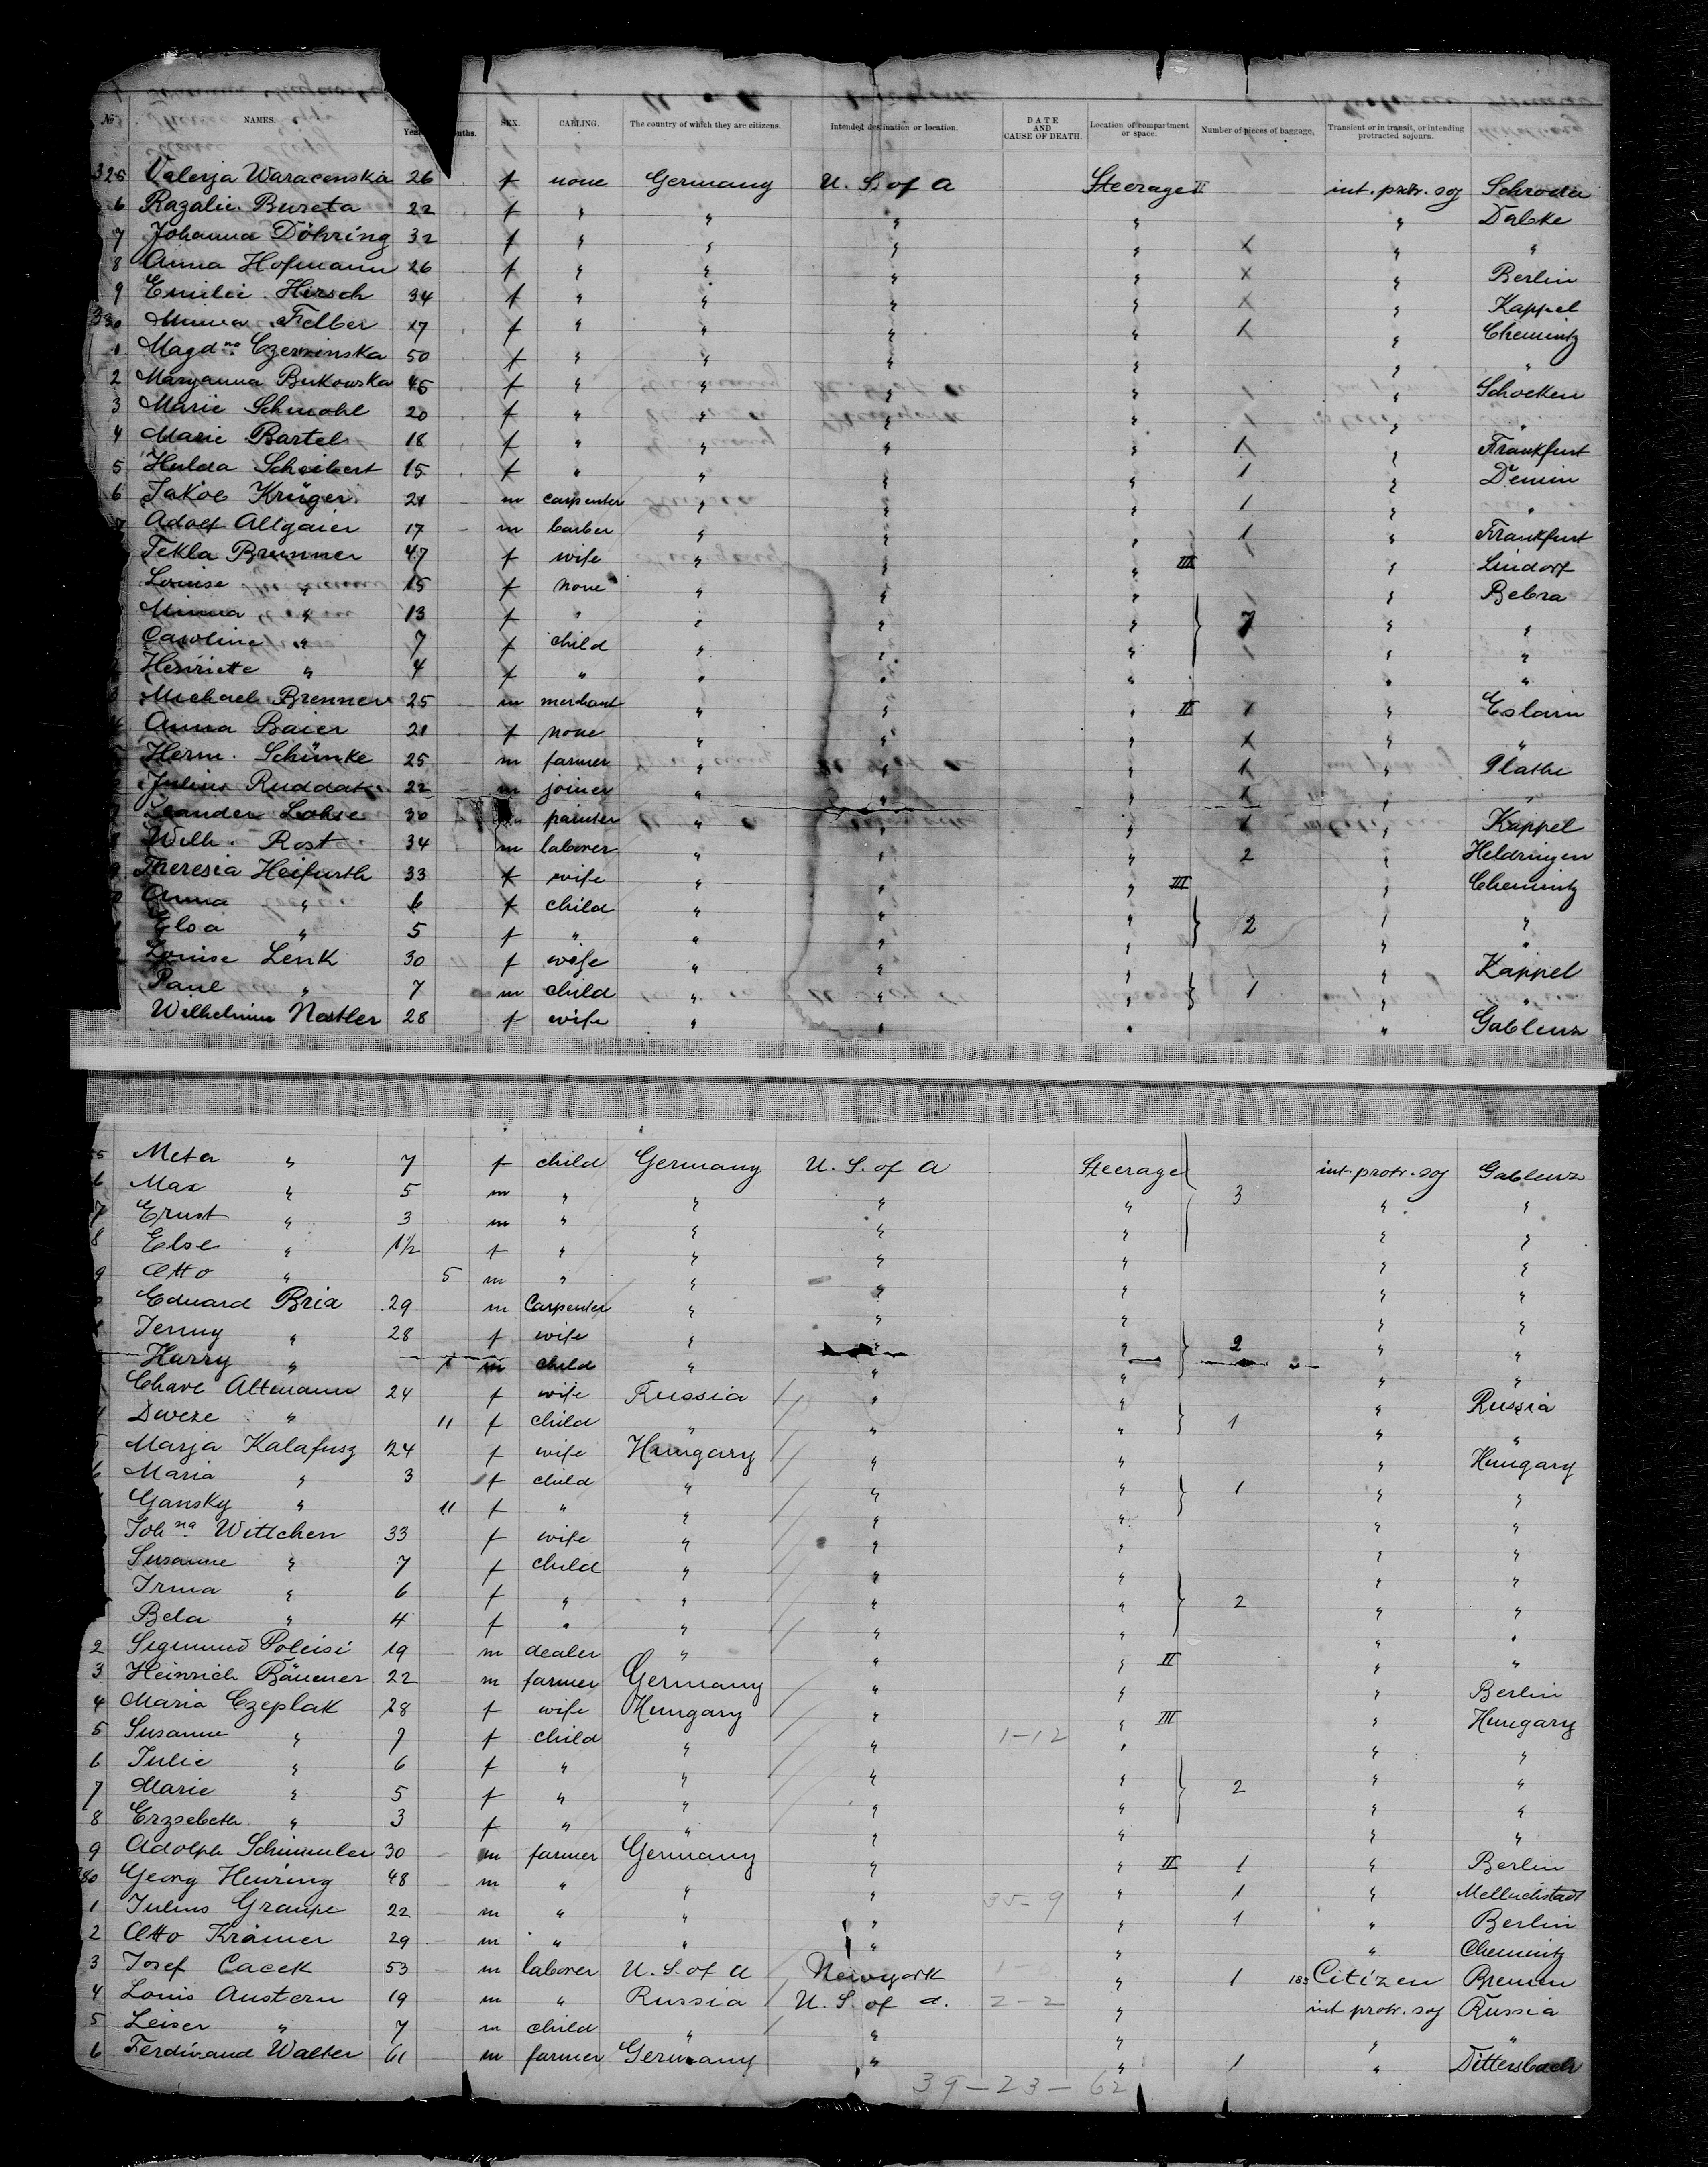 No. NAMES. Years. Months. SEX. CALLING. The country of which they are citizens. Intended destination or location. DATE AND CAUSE OF DEATH. Location of compartment or space. Number of pieces of baggage, Transient or in transit, or intending protracted sojourn.
325 Valerja Waracenska 26 f none Germany U. S. of A Steerage II int. protr. soj Schroda
6 Razalie Bureta 22 f " " " " " Dabke
7 Johanna Döhring 32 f " " " " X " "
8 Anna Hofmann 26 f " " " " X " Berlin
9 Emilie Hirsch 34 f " " " " X " Kappel
330 Minna Felber 17 f " " " " X " Chemnitz
1 Magdna Czerninska 50 f " " " " " "
2 Maryanna Bukowska 45 f " " " " " Schocken
3 Marie Schmohl 20 f " " " " " "
4 Marie Bartel 18 f " " " " 1 " Frankfurt
5 Hulda Scheibert 15 f " " " " 1 " Demin
6 Jakob Krüger 21 m carpenter " " " 1 " "
7 Adolf Allgaier 17 m barber " " " 1 " Frankfurt
Tekla Brunner 47 f wife " " " III " Lindorf
Louise " 15 f none " " " " Bebra
Minna " 13 f " " " " 7 " "
Caroline " 7 f child " " " " "
Henriette " 4 f " " " " " "
Michael Brenner 25 m merchant " " " II 1 " Eslarn
Anna Baier 21 f none " " " X " "
Herm. Schünke 25 m farmer " " " 1 " Plathe
Julius Ruddat 22 m joiner " " " X " "
Leander Lohse 30 painter " " " 1 " Kappel
Wilh. Rost 34 m laborer " " " 2 " Heldringen
Theresia Heifurth 33 f wife " " " III " Chemnitz
Anna " 6 f child " " " 2 " "
Elsa " 5 f " " " " " "
Louise Lenk 30 f wife " " " " Kappel
Paul " 7 m child " " " 1 " "
Wilhelmine Nestler 28 f wife " " " " Gablenz
55 Meta " 7 f child Germany U. S. of A Steerage int. protr. soj Gablenz
6 Max " 5 m " " " " 3 " "
7 Ernst " 3 m " " " " " "
8 Else " 1½ f " " " " " "
9 Otto " 5 m " " " " " "
Eduard Brix 29 m Carpenter " " " " "
Jenny " 28 f wife " " " 2 " "
Harry " 1 m child " " " " "
Chave Altmann 24 f wife Russia " " " Russia
Dweze " 11 f child " " " 1 " "
Marja Kalafusz 24 f wife Hungary " " " Hungary
6 Maria " 3 f child " " " 1 " "
Gansky " 11 f " " " " " "
Johna Wittchen 33 f wife " " " " "
Susanne " 7 f child " " " " "
Irma " 6 f " " " " 2 " "
Bela " 4 f " " " " " "
2 Sigmund Poleisi 19 m dealer " " " II " "
3 Heinrich Bäumer 22 m farmer Germany " " " Berlin
4 Maria Czeplak 28 f wife Hungary " " III " Hungary
5 Susanne " 7 f child " " 1-12 " " "
6 Julie " 6 f " " " " " "
7 Marie " 5 f " " " " 2 " "
8 Erzsebeth " 3 f " " " " " "
9 Adolph Schimmler 30 m farmer Germany " " II 1 " Berlin
380 Georg Heuring 48 m " " " " 1 " Mellrichstadt
1 Julius Graupe 22 m " " " 35-9 " 1 " Berlin
2 Otto Krämer 29 m " " " " " Chemnitz
3 Josef Cacek 53 m laborer U. S. of A Newyork " 1 Citizen Bremen
4 Louis Austern 19 m " Russia U. S. of A. 2-2 " int protr. soj Russia
5 Leiser " 7 m child " " " " "
6 Ferdinand Walter 61 m farmer Germany " " 1 " Dittersbach
39-23-62